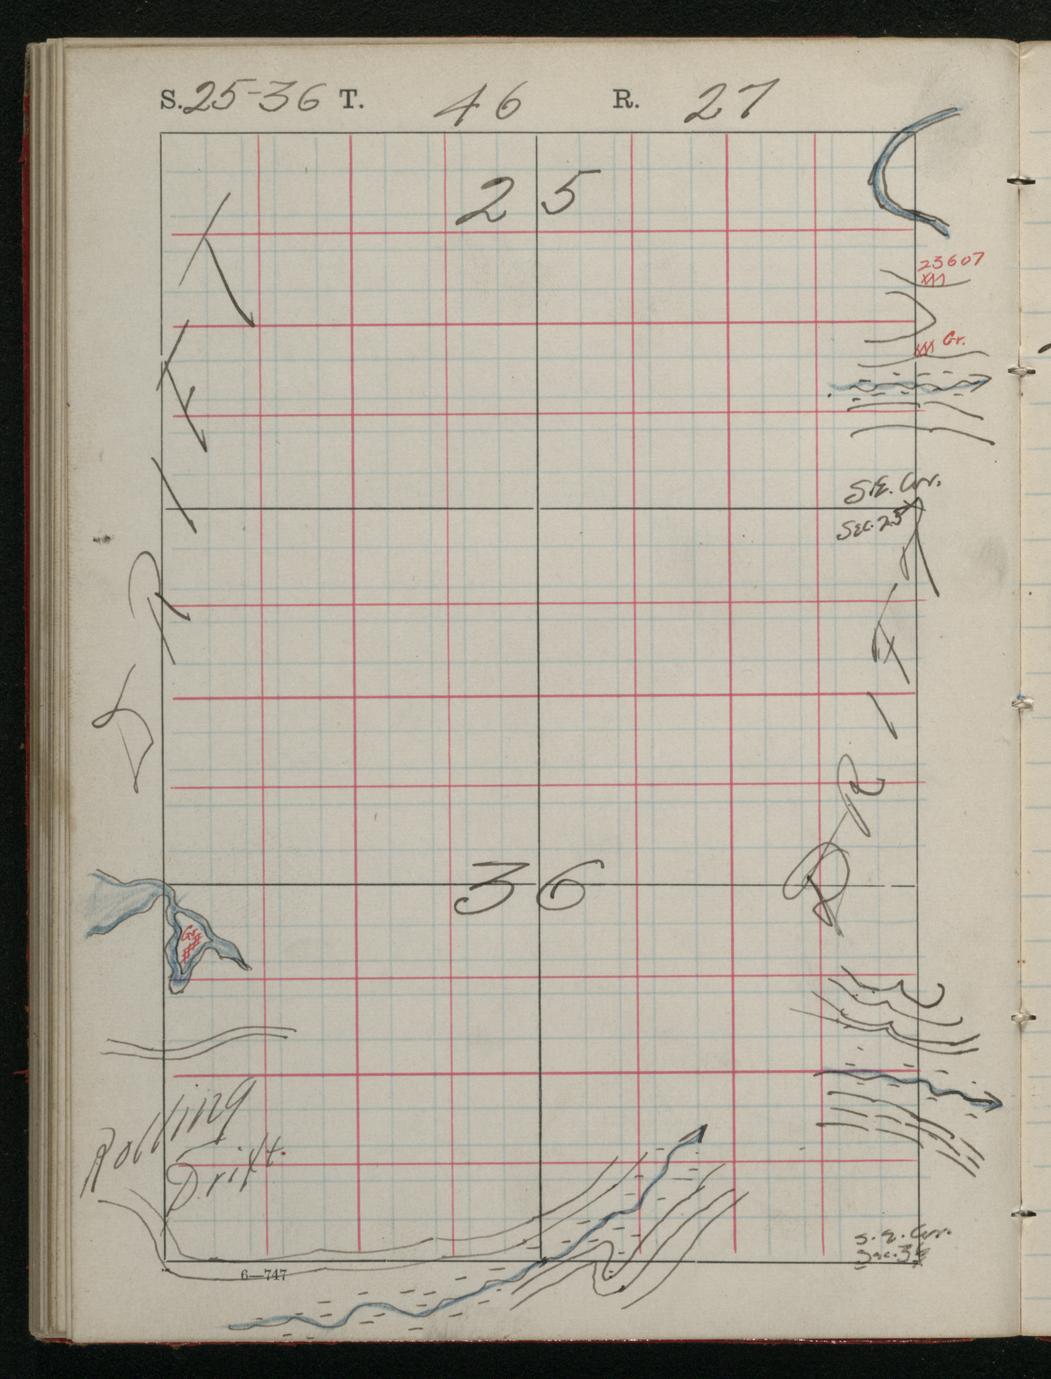 S. 25-36 T. 46 R. 27
25
23607
Gr.
S.E. Cor.
Sec. 25
DRIFT
DRIFT
36
Gr.
Rolling
Drift.
S.E. Cor.
Sec. 36
6—747